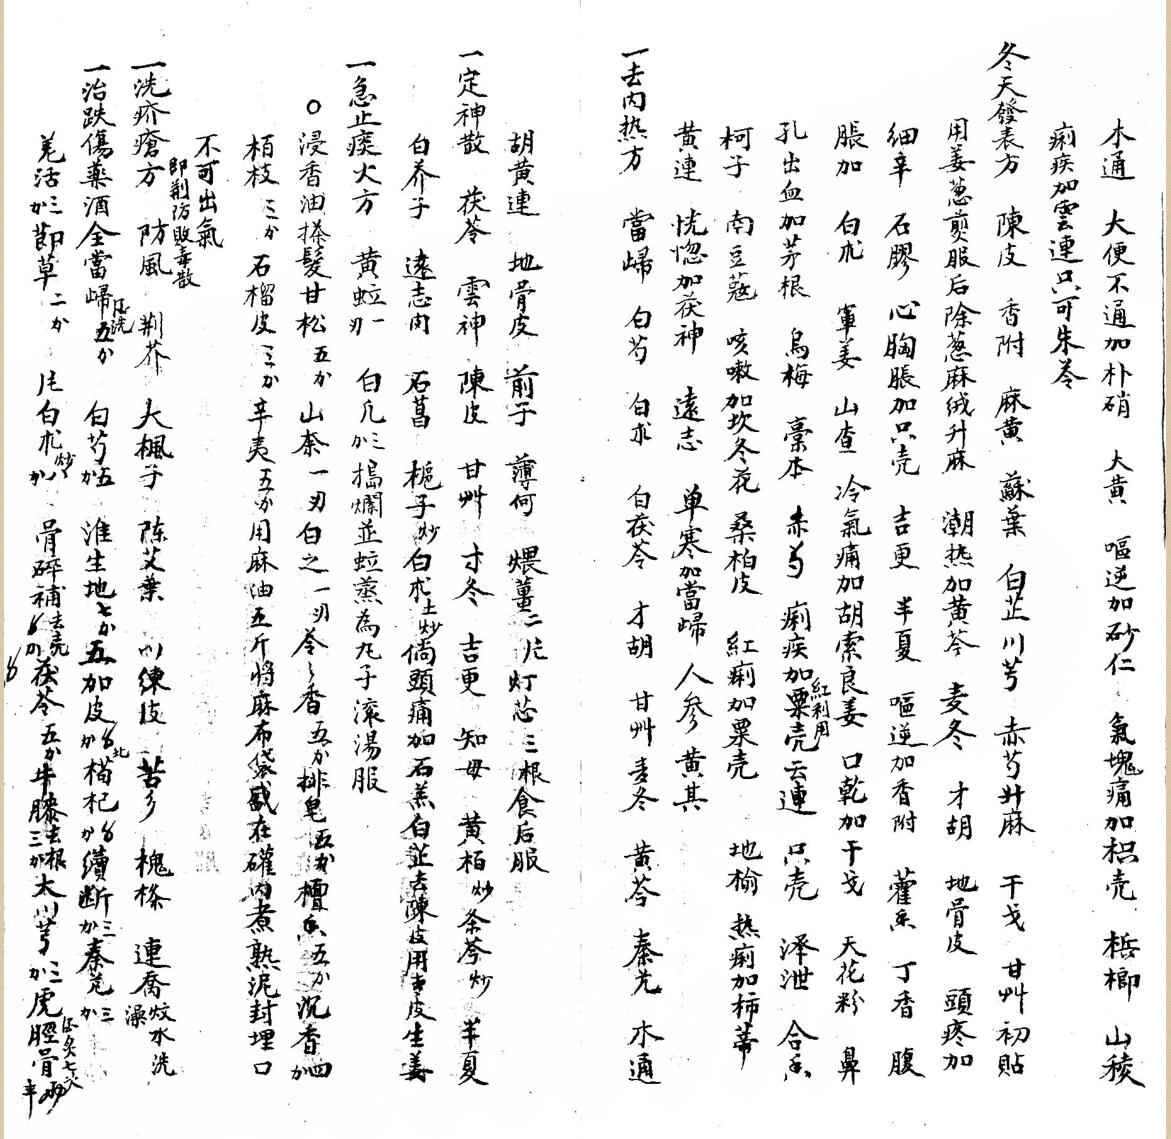 木通 大便不通加朴硝 大黄 嘔逆加砂仁 氣塊痛加枳壳 梹榔 山稜
痢疾加雲連只可朱苓
冬天發表方 陳皮 香附 麻黄 蘇葉 白芷川芎 赤芍升麻 干戈 甘艸初貼
用姜葱煎服后除葱麻絨升麻 潮热加黄芩 麦冬 才胡 地骨皮 頭疼加
細辛 石膠 心胸脹加只壳 吉更 半夏 嘔逆加香附 藿香 丁香 腹
脹加 白朮 軍姜 山查 冷氣痛加胡索良姜 口乾加干戈 天花粉 鼻
孔出血加茅根 烏梅 藁本 赤芍 痢疾加粟壳云連 只壳 泽泄 合香
紅利用
柯子 南豆蔻 咳嗽加坎冬花 桑柏皮 紅痢加粟壳 地榆 热痢加柿蒂
黄連 恍惚加茯神 遠志 单寒加當歸 人参黄其
一去内热方 當歸 白芍 白朮 白茯苓 才胡 甘艸 麦冬 黄芩 秦艽 木通
胡黄連 地骨皮 前子 薄何 煨薑二片灯芯三根食后服
一定神散 茯苓 雲神 陳皮 甘艸 寸冬 吉更 知母 黄栢炒条芩炒 半夏
白芥子 遠志肉 石菖 梔子炒白朮土炒倘頭痛加石羔白芷去陳皮用青皮生姜
一急止痰火方 黄蛀一刄 白凡三か搗爛並蛀蒸為九子滚湯服
○浸香油搽髮甘松五か 山柰一刄白之一刄苓々香五か排皂五か檀香五か沉香四か
栢枝三か 石榴皮三か辛夷五か用麻油五斤將麻布袋盛在罐内煮熟泥封埋口
不可出氣
一洗疥瘡方 防風 荆芥 大楓子 陈艾葉 川練皮 苦参 槐條 連喬煎水洗澡
即荆防敗毒散
一治跌傷藥酒全當歸酒洗五か 白芍五か 淮生地七か五加皮か枸杞か續断三か秦艽三か
羌活三か節草二か 片白朮炒か 骨碎補去壳か茯苓五か牛膝去根三か大川芎三か虎脛骨